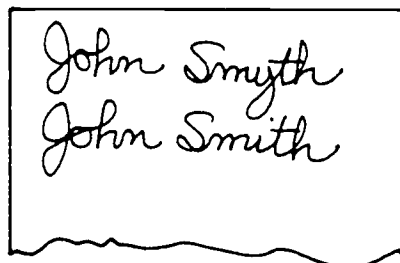 John Smyth
John Smith